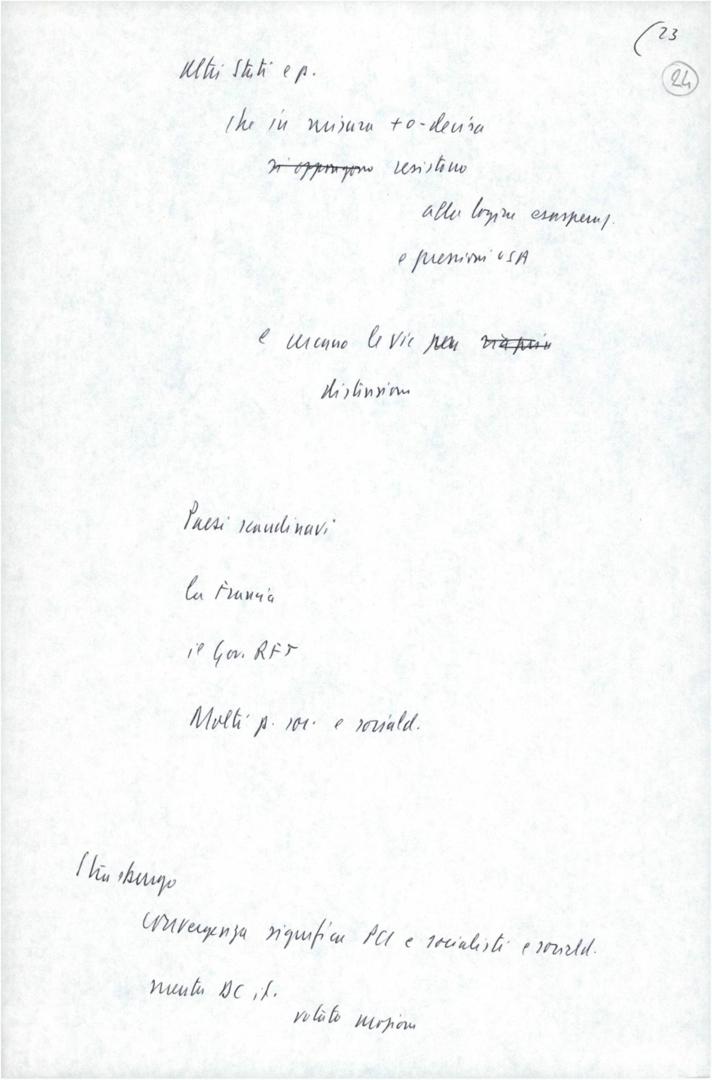 (23
24
Altri Stati e p.
che in misura + o - decisa
si oppongono resistono
alla logica esasperaz.
e pressioni USA
e cercano le vie per
distensione
Paesi scandinavi
la Francia
il Gov. RFT
Molti p. soc. e sociald.
Strasburgo
convergenza significa PCI e socialisti e sociald.
mentre DC it.
votato mozione